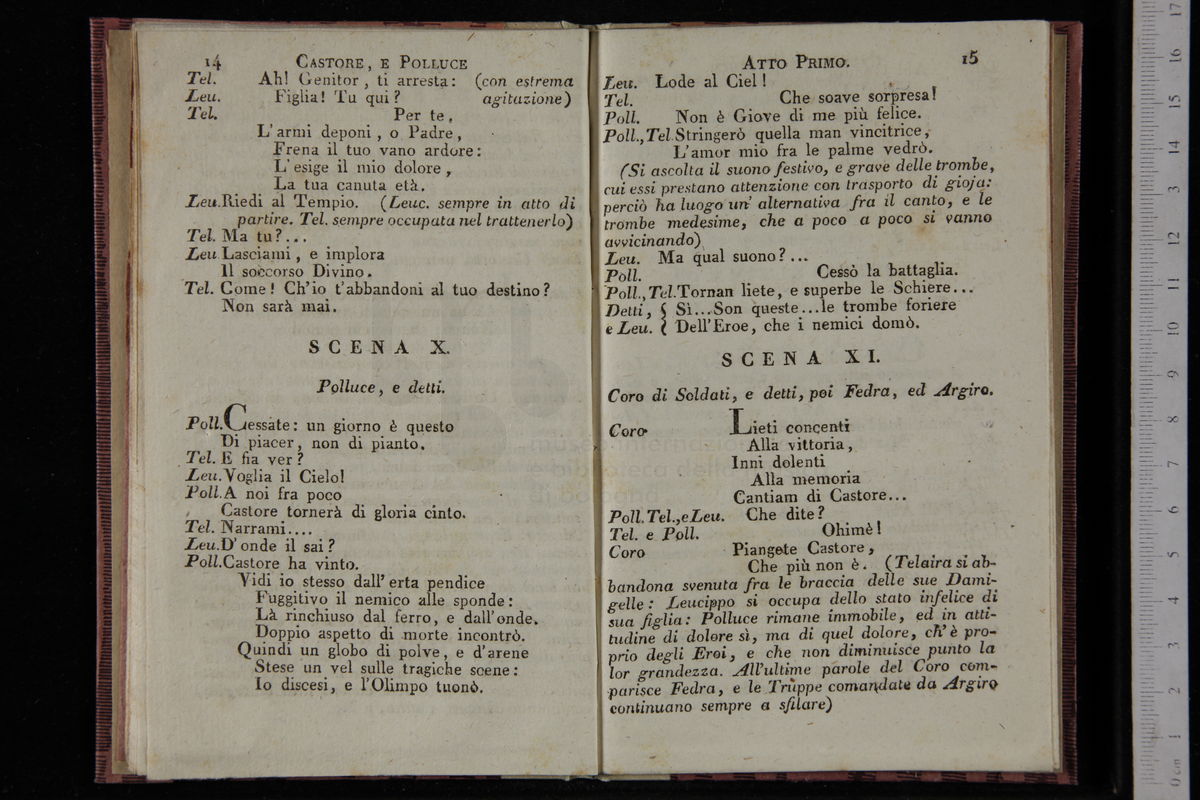 14 CASTORE, E POLLUCE
Tel. Ah! Genitor, ti arresta: (con estrema
Leu. Figlia! Tu qui? agitazione)
Tel. Per te,
L'armi deponi, o Padre,
Frena il tuo vano ardore:
L'esige il mio dolore,
La tua canuta età.
Leu. Riedi al Tempio. (Leuc. sempre in atto di
partire. Tel. sempre occupata nel trattenerlo)
Tel. Ma tu?...
Leu. Lasciami, e implora
Il soccorso Divino.
Tel. Come! Ch'io t'abbandoni al tuo destino?
Non sarà mai.
SCENA X.
Polluce, e detti.
Poll. Cessate: un giorno è questo
Di piacer, non di pianto.
Tel. E fia ver?
Leu. Voglia il Cielo!
Poll. A noi fra poco
Castore tornerà di gloria cinto.
Tel. Narrami....
Leu. D'onde il sai?
Poll. Castore ha vinto.
Vidi io stesso dall'erta pendice
Fuggitivo il nemico alle sponde:
Là rinchiuso dal ferro, e dall'onde,
Doppio aspetto di morte incontrò.
Quindi un globo di polve, e d'arene
Stese un vel sulle tragiche scene:
Io discesi, e l'Olimpo tuonò.
ATTO PRIMO. 15
Leu. Lode al Ciel!
Tel. Che soave sorpresa!
Poll. Non è Giove di me più felice.
Poll., Tel. Stringerò quella man vincitrice,
L'amor mio fra le palme vedrò.
(Si ascolta il suono festivo, e grave delle trombe,
cui essi prestano attenzione con trasporto di gioja:
perciò ha luogo un' alternativa fra il canto, e le
trombe medesime, che a poco a poco si vanno
avvicinando)
Leu. Ma qual suono?...
Poll. Cessò la battaglia.
Poll., Tel. Tornan liete, e superbe le Schiere...
Detti, { Sì...Son queste...le trombe foriere
e Leu. { Dell'Eroe, che i nemici domò.
SCENA XI.
Coro di Soldati, e detti, poi Fedra, ed Argiro.
Coro Lieti concenti
Alla vittoria,
Inni dolenti
Alla memoria
Cantiam di Castore...
Poll. Tel., e Leu. Che dite?
Tel. e Poll. Ohimè!
Coro Piangete Castore,
Che più non è. (Telaira si ab-
bandona svenuta fra le braccia delle sue Dami-
gelle: Leucippo si occupa dello stato infelice di
sua figlia: Polluce rimane immobile, ed in atti-
tudine di dolore sì, ma di quel dolore, ch'è pro-
prio degli Eroi, e che non diminuisce punto la
lor grandezza. All'ultime parole del Coro com-
parisce Fedra, e le Truppe comandate da Argiro
continuano sempre a sfilare)